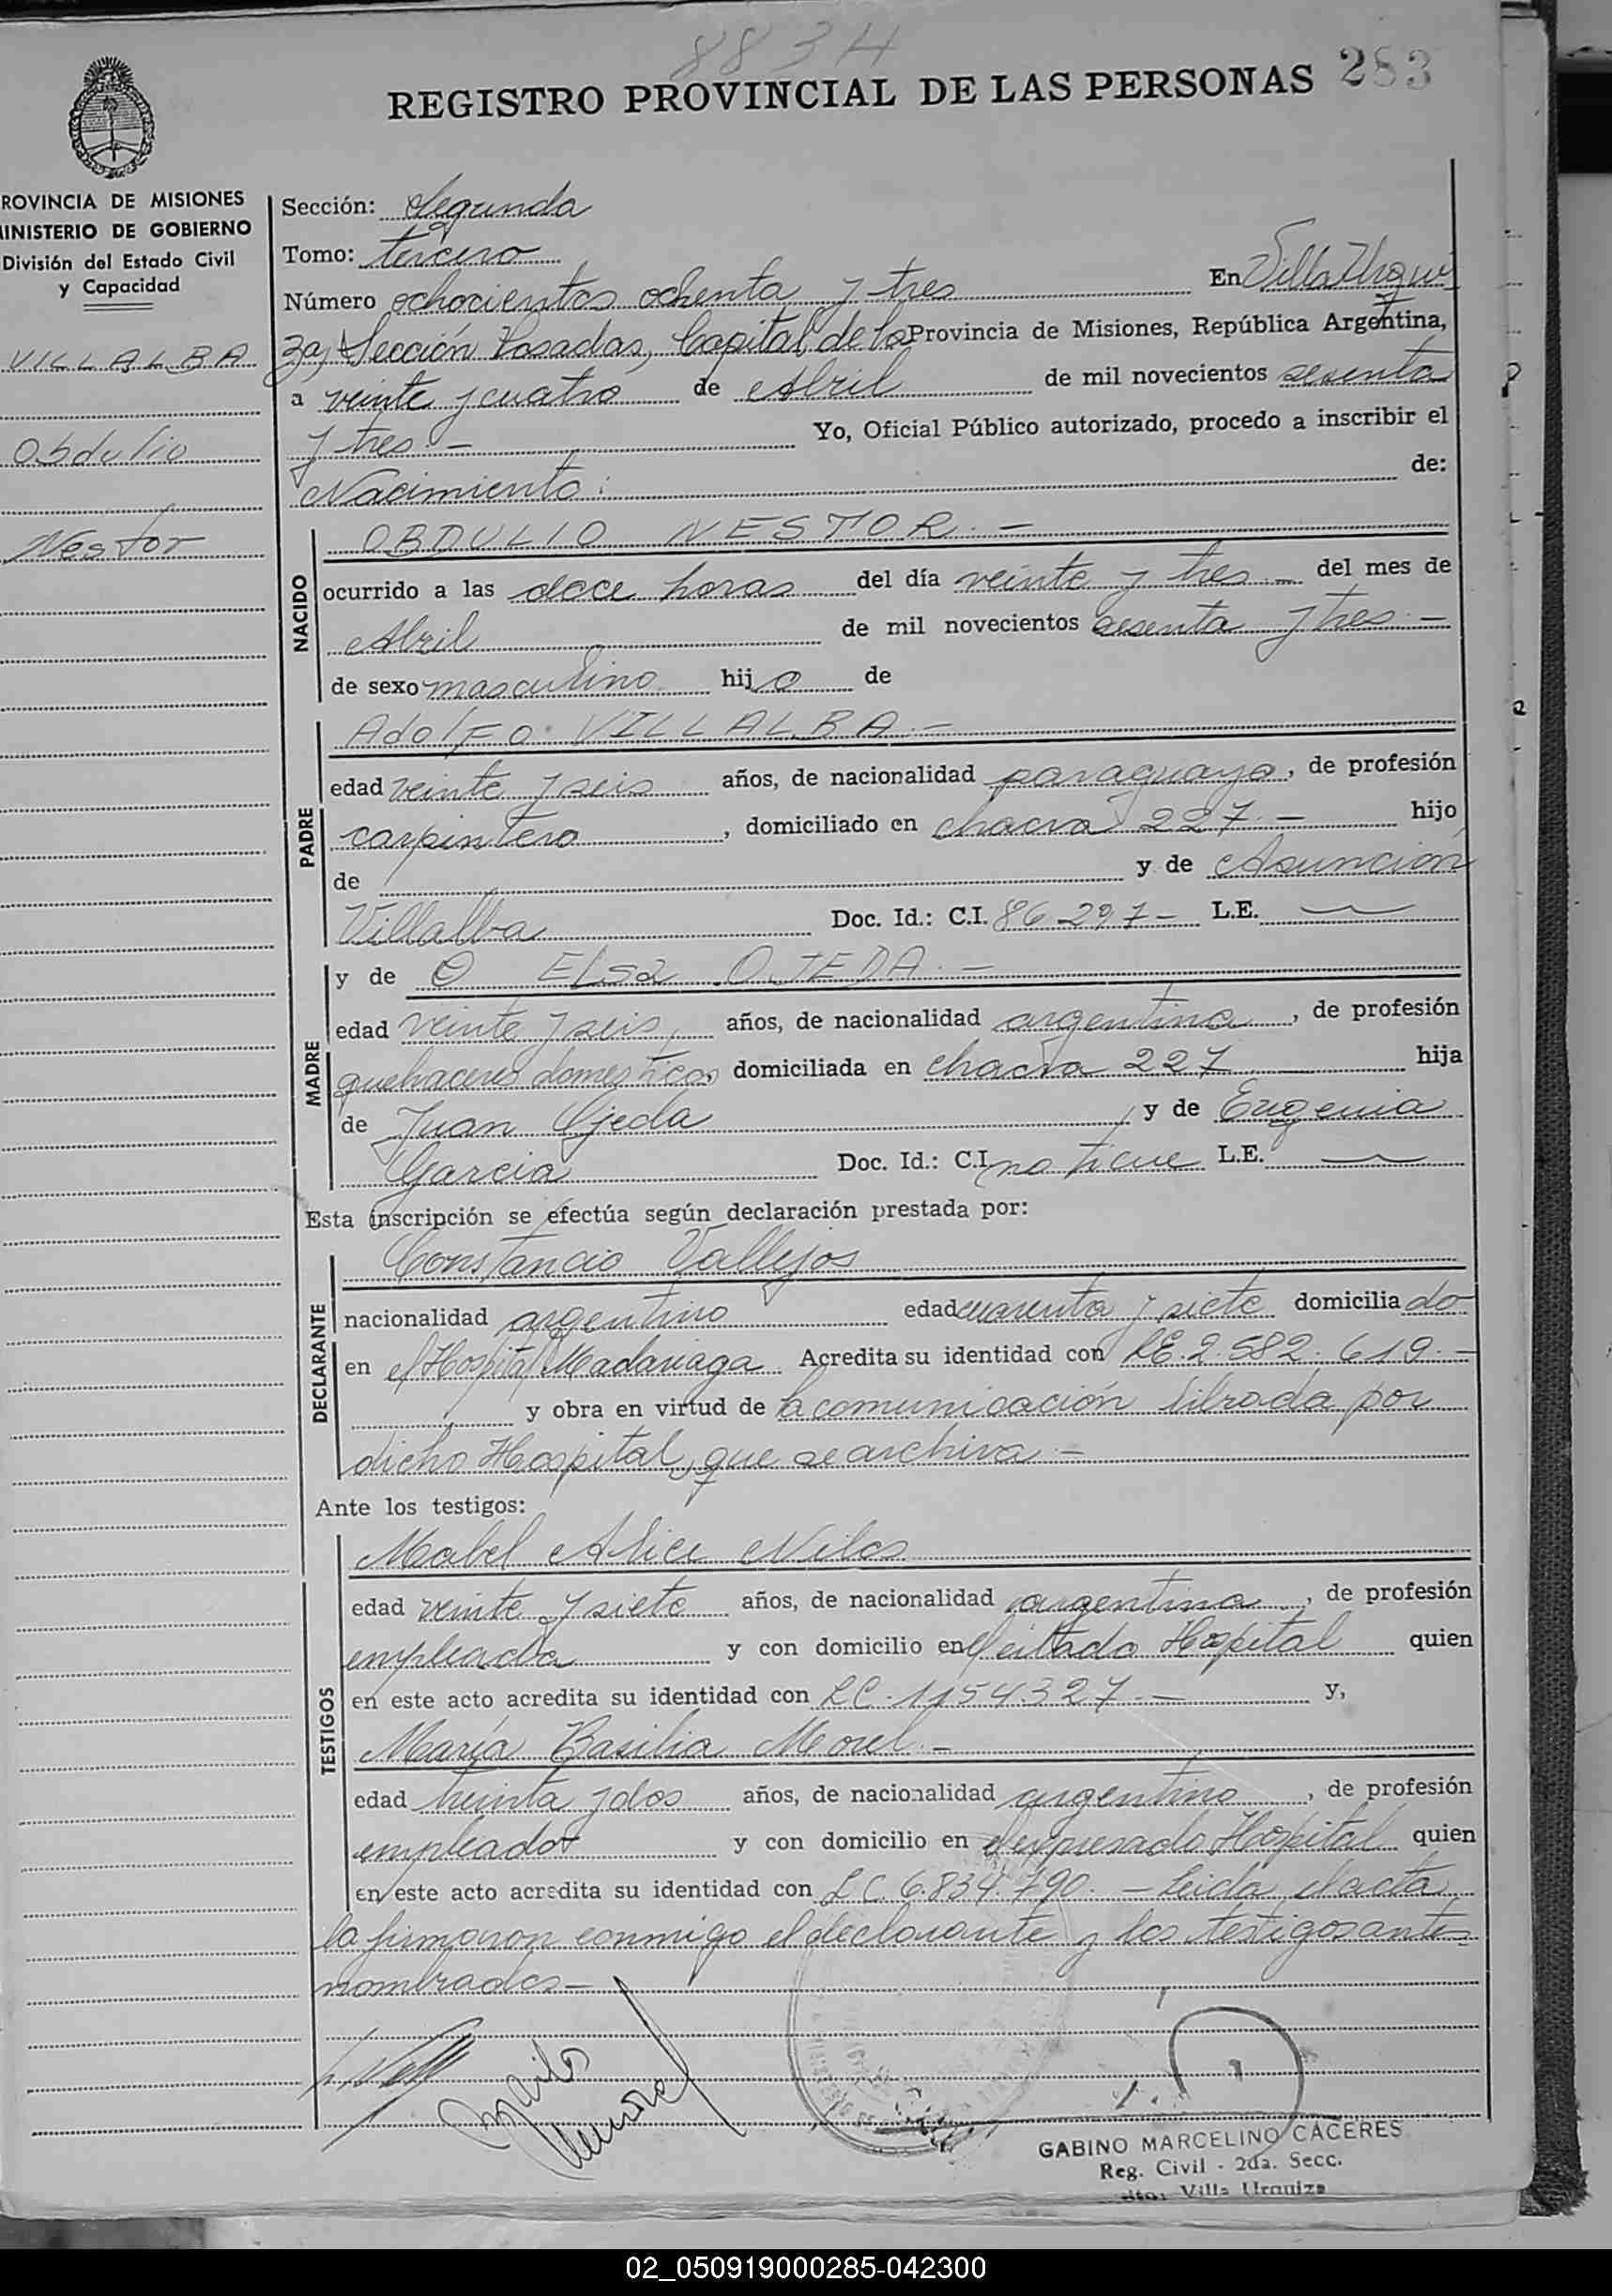 8834
REGISTRO PROVINCIAL DE LAS PERSONAS 283
ROVINCIA DE MISIONES
MINISTERIO DE GOBIERNO
División del Estado Civil
y Capacidad
VILLALBA
Obdulio
Néstor
Sección: Segunda
Tomo: tercero
Número ochocientos ochenta y tres En Villa Urqui
za, Sección Posadas, Capital de la Provincia de Misiones, República Argentina,
a veinte y cuatro de Abril de mil novecientos sesenta
y tres.— Yo, Oficial Público autorizado, procedo a inscribir el
Nacimiento: de:
NACIDO
OBDULIO NESTOR.—
ocurrido a las doce horas del día veinte y tres del mes de
Abril de mil novecientos sesenta y tres.—
de sexo masculino hijo de
PADRE
Adolfo VILLALBA.—
edad veinte y seis años, de nacionalidad paraguaya, de profesión
carpintero, domiciliado en chacra 227.— hijo
de y de Asunción
Villalba Doc. Id.: C.I. 86.297— L.E. —
MADRE
y de ELSa OJEDA.—
edad veinte y seis, años, de nacionalidad argentina, de profesión
quehaceres domesticos, domiciliada en chacra 227 hija
de Juan Ojeda y de Eugenia
Garcia Doc. Id.: C.I. no tiene L.E. —
Esta inscripción se efectúa según declaración prestada por:
DECLARANTE
Constancio Vallejos
nacionalidad argentino edad cuarenta y siete domiciliado
en el Hospital Madariaga Acredita su identidad con LE. 2.582.619.—
y obra en virtud de la comunicación librada por
dicho Hospital, que se archiva.—
Ante los testigos:
TESTIGOS
Mabel Alice
edad veinte y siete años, de nacionalidad argentina, de profesión
empleada y con domicilio en el citado Hospital quien
en este acto acredita su identidad con LC. 1154.327.— y,
María Basilia Morel.—
edad treinta y dos años, de nacionalidad argentino, de profesión
empleado y con domicilio en el expresado Hospital quien
en este acto acredita su identidad con LC 6.834.790.— Leida el acta
la firmaron conmigo el declarante y los testigos antes
nombrados—
GABINO MARCELINO CACERES
Reg. Civil - 2da. Secc.
Villa Urquiza
02_050919000285-042300